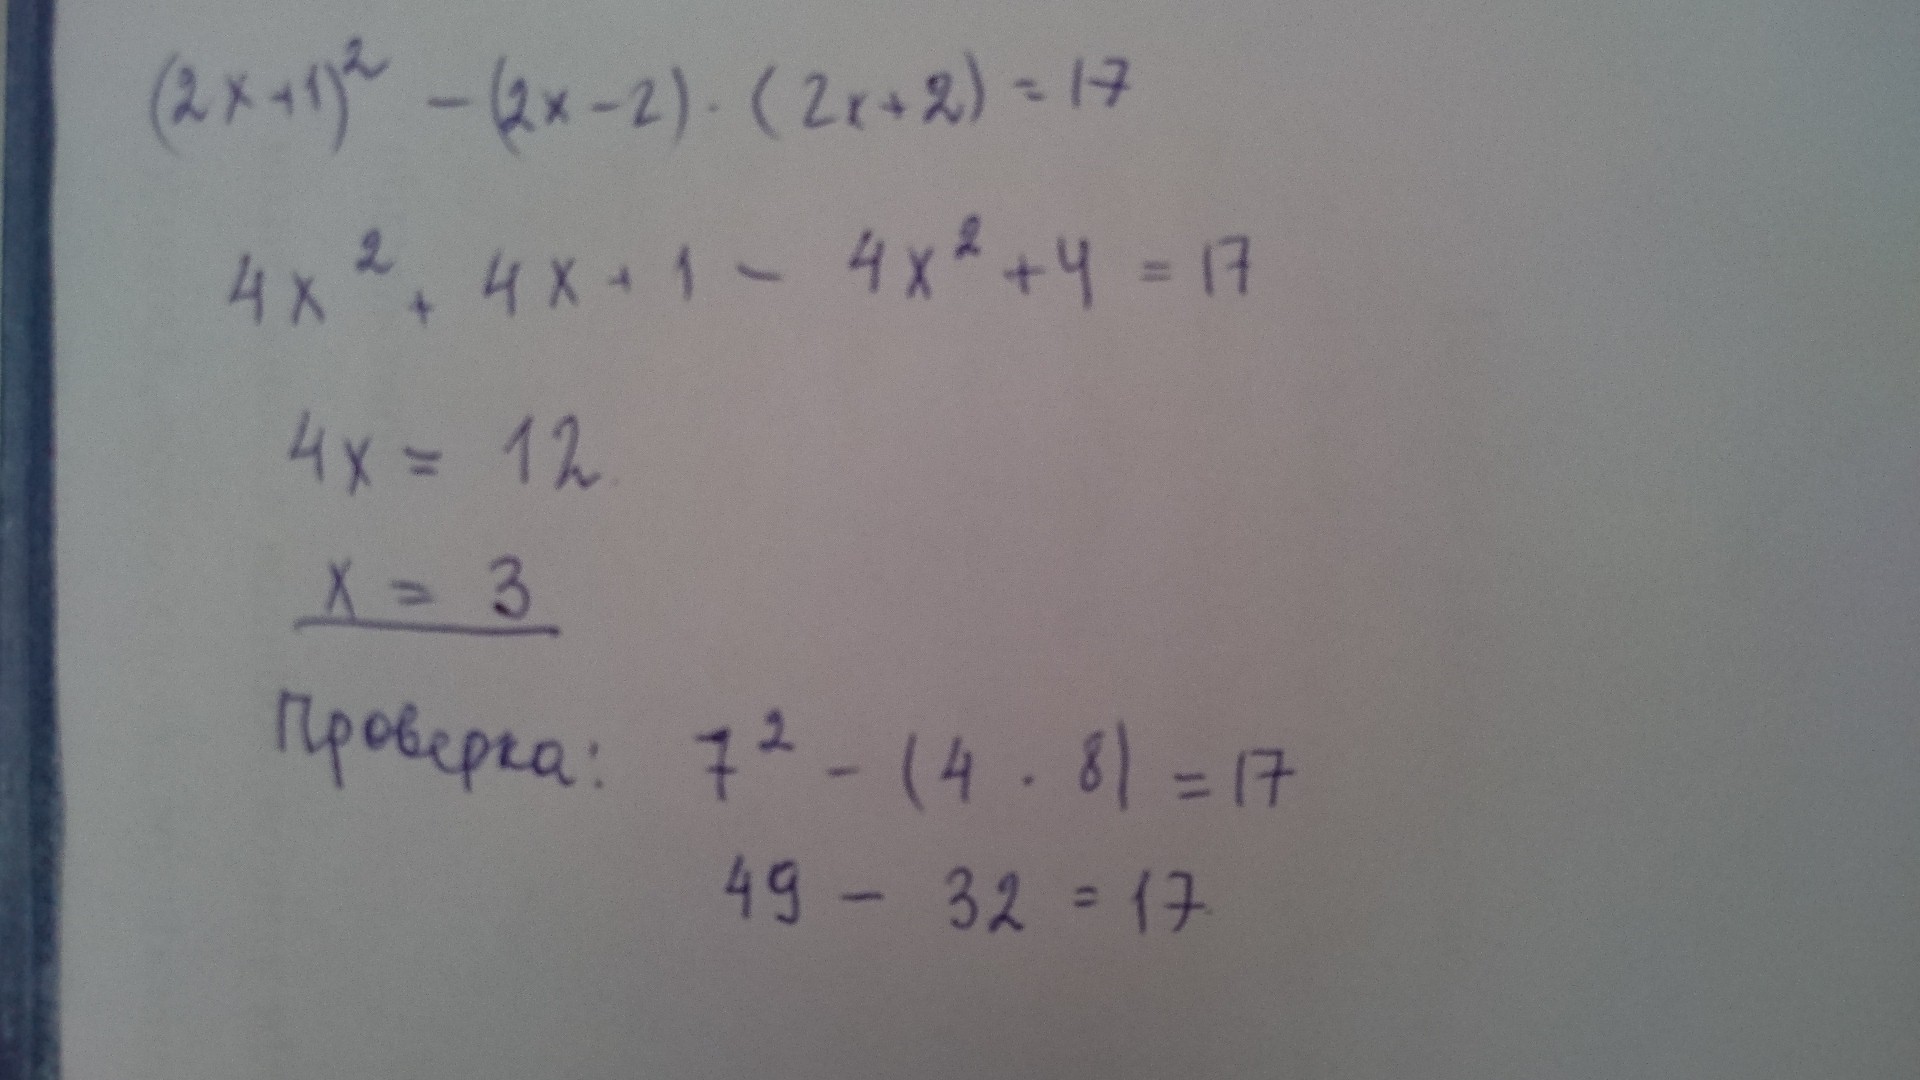 (2x+1)² - (2x-2) · (2x+2) = 17
4x² + 4x + 1 - 4x² + 4 = 17
4x = 12
x = 3
Проверка: 7² - (4 · 8) = 17
49 - 32 = 17